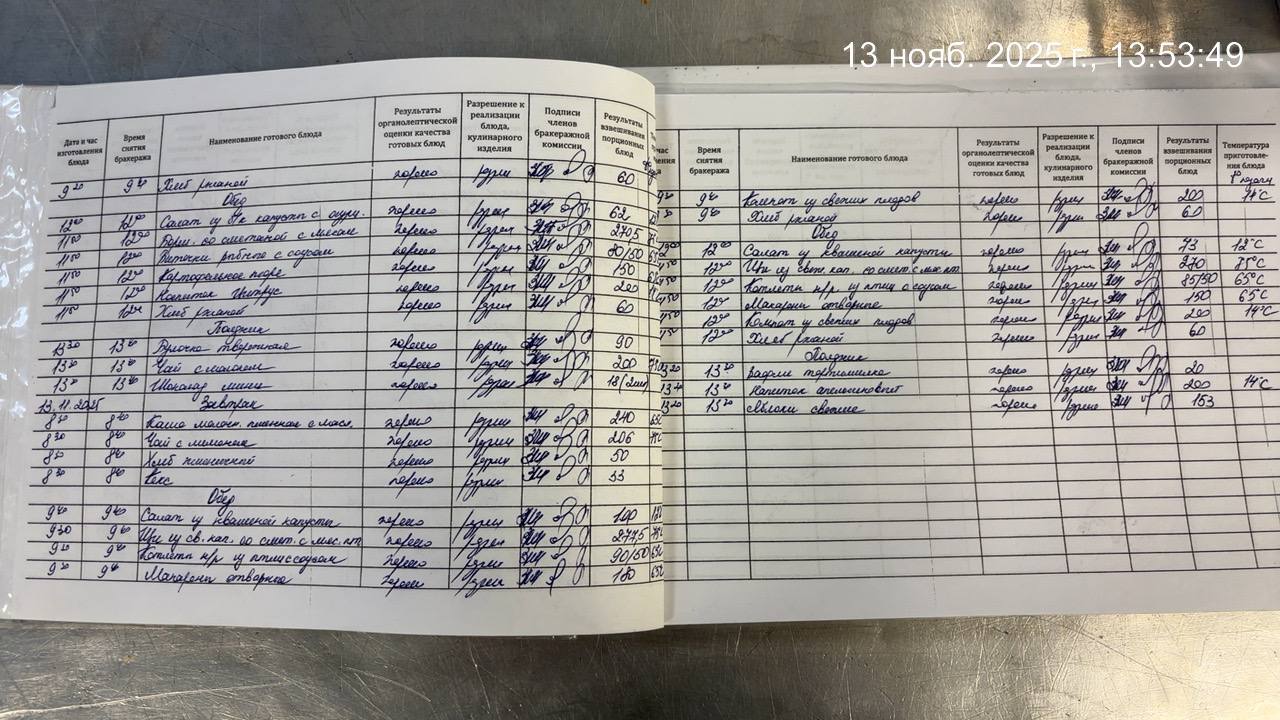 13 нояб. 2025 г., 13:53:49
Дата и час изготовления блюда
Время снятия бракеража
Наименование готового блюда
Результаты органолептической оценки качества готовых блюд
Разрешение к реализации блюда, кулинарного изделия
Подписи членов бракеражной комиссии
Результаты взвешивания порционных блюд
9 20 9 40 Хлеб ржаной хорошо 60
Обед
12 00 12 20 Салат из капусты с хорошо 62
11 50 12 00 Борщ со сметаной с мясом хорошо 270,5
11 50 12 00 Биточки рыбные с соусом хорошо 80/50
11 50 12 00 Картофельное пюре хорошо 150
11 50 12 00 Напиток цитрус хорошо 200
11 50 12 00 Хлеб ржаной хорошо 60
Полдник
13 20 13 30 Булочка творожная хорошо 90
13 20 13 30 Чай с молоком хорошо 200
13 20 13 30 Шоколад мини хорошо
13.11.2025 Завтрак
8 30 8 40 Каша молочн. пшенная с масл. хорошо 240
8 30 8 40 Чай с лимоном хорошо 206
8 30 8 40 Хлеб пшеничный хорошо 50
8 30 8 40 Кекс хорошо 33
Обед
9 30 9 40 Салат из квашеной капусты хорошо 100
9 30 9 40 Щи из св. кап. со смет. с мяс. пт. хорошо 277,5
9 30 9 40 Котлеты н/р из птицы с соусом хорошо 90/50
9 30 9 40 Макароны отварные хорошо 180
Время снятия бракеража
Наименование готового блюда
Результаты органолептической оценки качества готовых блюд
Разрешение к реализации блюда, кулинарного изделия
Подписи членов бракеражной комиссии
Результаты взвешивания порционных блюд
Температура приготовления блюда
t° подачи
9 40 Компот из свежих плодов хорошо 200 14°С
9 40 Хлеб ржаной хорошо 60
Обед
12 00 Салат из квашеной капусты хорошо 73 12°С
12 00 Щи из свеж. кап. со смет. с мяс. пт. хорошо 270 75°С
12 00 Котлеты н/р из птиц с соусом хорошо 85/50 65°С
12 00 Макароны отварные хорошо 150 65°С
12 00 Компот из свежих плодов хорошо 200 14°С
12 00 Хлеб ржаной хорошо 60
Полдник
13 30 Вафли хорошо 20
13 30 Напиток апельсиновый хорошо 200 14°С
13 30 Яблоки свежие хорошо 153